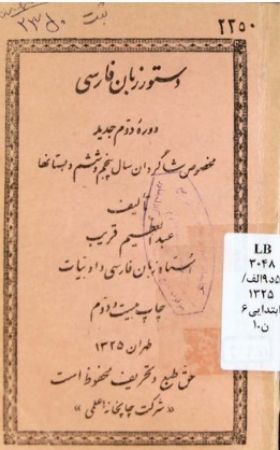 ۲۲۵۰
ثبت
دستور زبان فارسی
دورهٔ دوّم جدید
مخصوص شاگردان سال پنجم و ششم دبستانها
تألیف
عبدالعظیم قریب
استاد زبان فارسی و ادبیات
چاپ بیست و دوّم
طهران ۱۳۲۵
حقّ طبع و تحریف محفوظ است
« شرکت چاپخانه علمی »
LB
۳۰۴۸
/الف۹د۵
۱۳۲۵
ابتدایی۶
ن۱۰